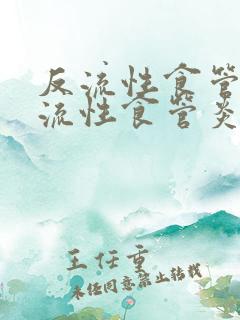 反流性食管
流性食管炎
王任重
未经同意禁止转载